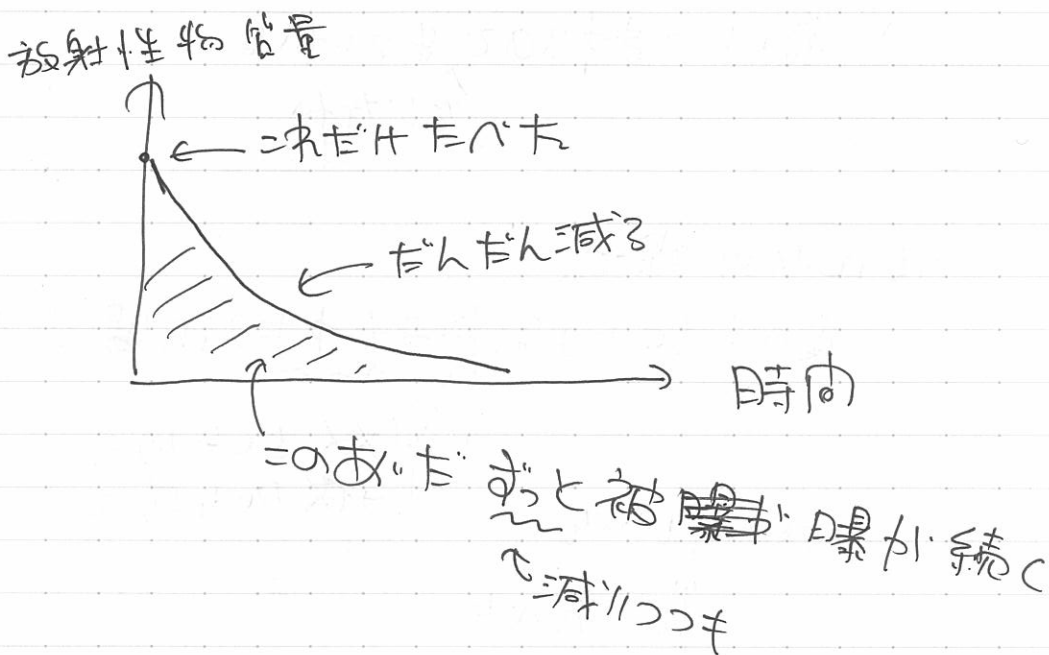 放射性物質量
これだけたべた
だんだん減る
時間
このあいだ ずっと被曝が続く
減りつつも